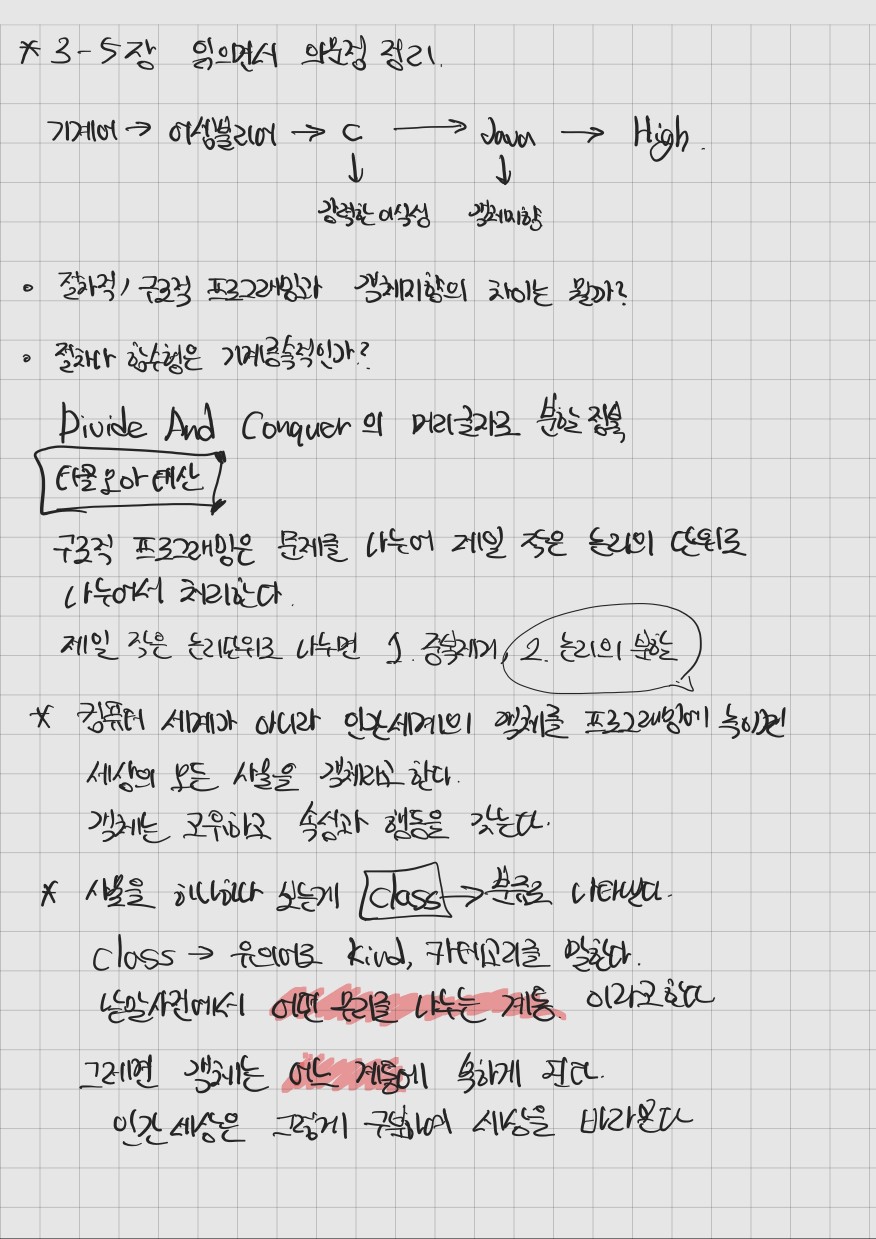 * 3-5장 읽으면서 의문점 정리.
기계어 → 어셈블리어 → C → Java → High.
↓ ↓
강력한 이식성 객체지향
• 절차적/구조적 프로그래밍과 객체지향의 차이는 뭘까?
• 절차나 함수형은 기계종속적인가?
Divide And Conquer의 머리글자로 분할 정복
티끌모아 태산
구조적 프로그래밍은 문제를 나누어 제일 작은 논리의 단위로
나누어서 처리한다.
제일 작은 논리단위로 나누면 1. 중복제거, 2. 논리의 분할
* 컴퓨터 세계가 아니라 인간세계의 객체를 프로그래밍에 녹이면
세상의 모든 사물을 객체라고 한다.
객체는 고유하고 속성과 행동을 갖는다.
* 사물을 하나하나 보는게 class → 분류로 나타낸다.
class → 유의어로 kind, 카테고리를 말한다.
낱말사전에서 어떤 무리를 나누는 계통 이라고한다
그러면 객체는 어느 계통에 속하게 된다.
인간 세상은 그렇게 구분하여 세상을 바라본다